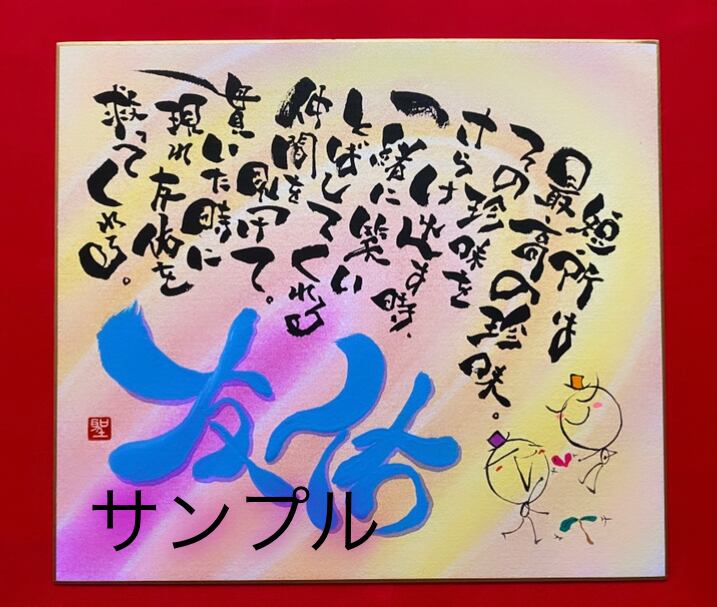 短所は
最高の珍味。
その珍味を
さらけ出す時、
一緒に笑い
とばしてくれる
仲間を見つけて。
貫いた時に
現れ友佑を
救ってくれる。
友佑
聖
サンプル